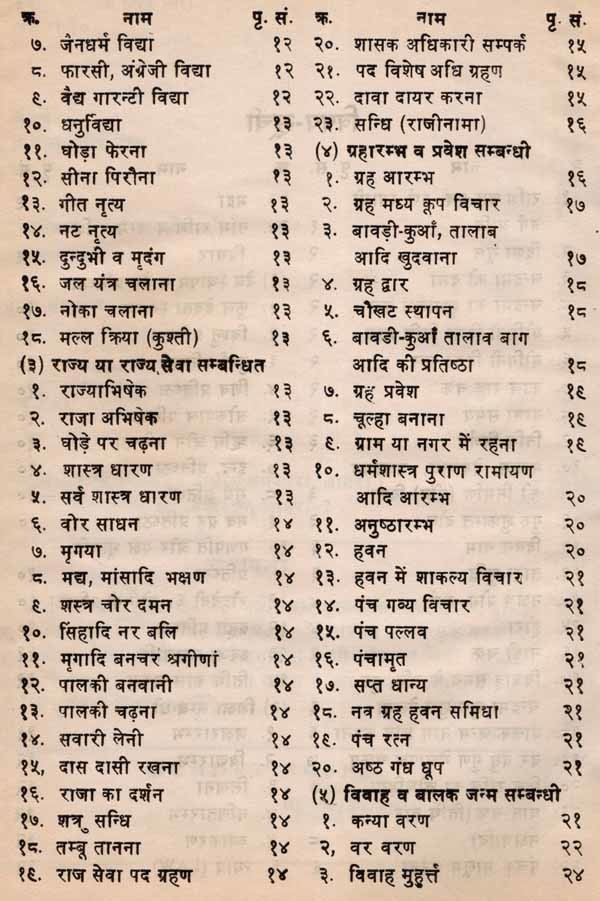 क्र. नाम पृ. सं.
७. जैनधर्म विद्या १२
८. फारसी, अंग्रेजी विद्या १२
९. वैद्य गारन्टी विद्या १२
१०. धनुर्विद्या १३
११. घोड़ा फेरना १३
१२. सीना पिरौना १३
१३. गीत नृत्य १३
१४. नट नृत्य १३
१५. दुन्दुभी व मृदंग १३
१६. जल यंत्र चलाना १३
१७. नोका चलाना १३
१८. मल्ल क्रिया (कुश्ती) १३
(३) राज्य या राज्य सेवा सम्बन्धित
१. राज्याभिषेक १३
२. राजा अभिषेक १३
३. घोड़े पर चढ़ना १३
४. शास्त्र धारण १३
५. सर्व शास्त्र धारण १३
६. वोर साधन १४
७. मृगया १४
८. मद्य, मांसादि भक्षण १४
९. शस्त्र चोर दमन १४
१०. सिंहादि नर बलि १४
११. मृगादि बनचर श्रगीणां १४
१२. पालकी बनवानी १४
१३. पालकी चढ़ना १४
१४. सवारी लेनी १४
१५, दास दासी रखना १४
१६. राजा का दर्शन १४
१७. शत्रु सन्धि १४
१८. तम्बू तानना १४
१९. राज सेवा पद ग्रहण १४
क्र. नाम पृ. सं.
२०. शासक अधिकारी सम्पर्क १५
२१. पद विशेष अधि ग्रहण १५
२२. दावा दायर करना १५
२३. सन्धि (राजीनामा) १६
(४) ग्रहारम्भ व प्रवेश सम्बन्धी
१. ग्रह आरम्भ १६
२. ग्रह मध्य कूप विचार १७
३. बावड़ी-कुआँ, तालाब
आदि खुदवाना १७
४. ग्रह द्वार १८
५. चौखट स्थापन १८
६. बावडी-कुआँ तालाव बाग
आदि की प्रतिष्ठा १८
७. ग्रह प्रवेश १९
८. चूल्हा बनाना १९
९. ग्राम या नगर में रहना १९
१०. धर्मशास्त्र पुराण रामायण
आदि आरम्भ २०
११. अनुष्ठारम्भ २०
१२. हवन २०
१३. हवन में शाकल्य विचार २१
१४. पंच गव्य विचार २१
१५. पंच पल्लव २१
१६. पंचामृत २१
१७. सप्त धान्य २१
१८. नव ग्रह हवन समिधा २१
१९. पंच रत्न २१
२०. अष्ठ गंध धूप २१
(५) विवाह व बालक जन्म सम्बन्धी
१. कन्या वरण २१
२, वर वरण २२
३. विवाह मुहुर्त्त २४